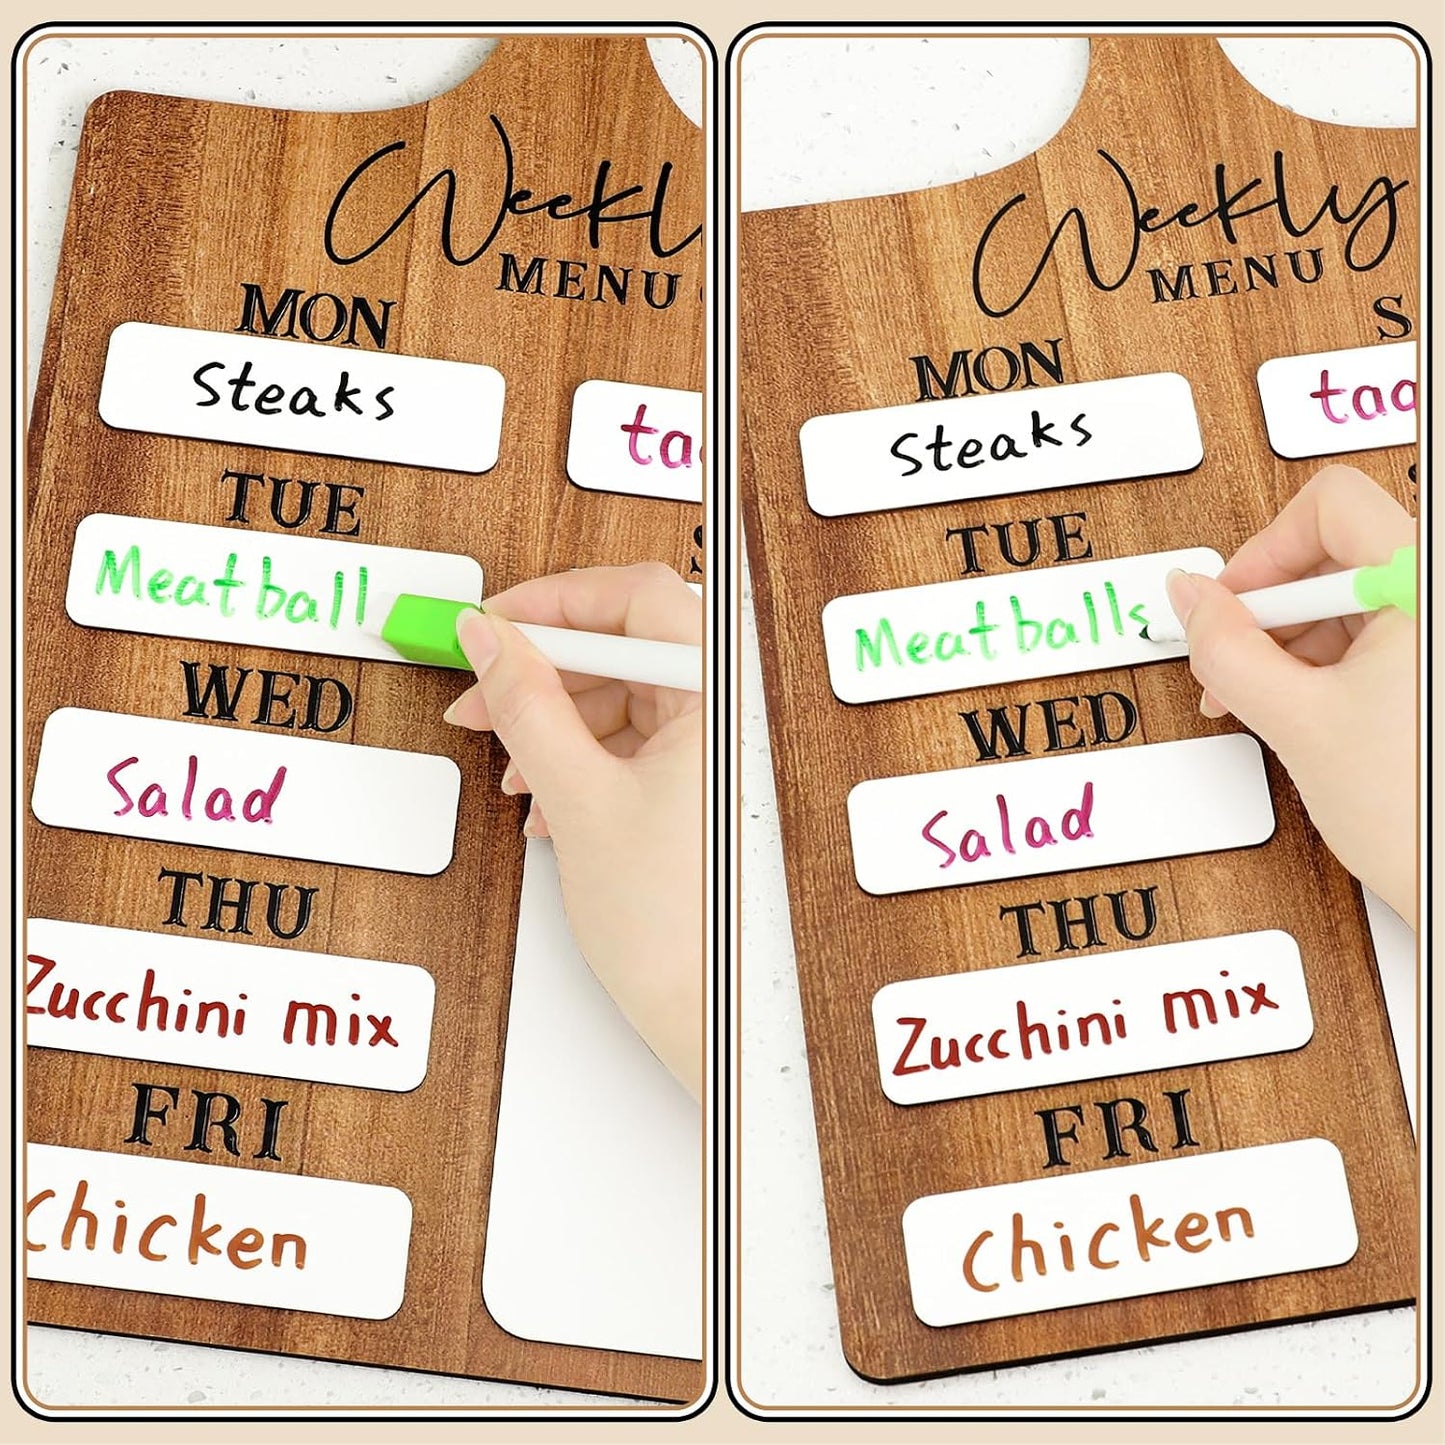 Weekl
MENU
MON
Steaks
TUE
Meatball
WED
Salad
THU
Zucchini mix
FRI
Chicken
Weekly
MENU
MON
Steaks
TUE
Meatballs
WED
Salad
THU
Zucchini mix
FRI
Chicken